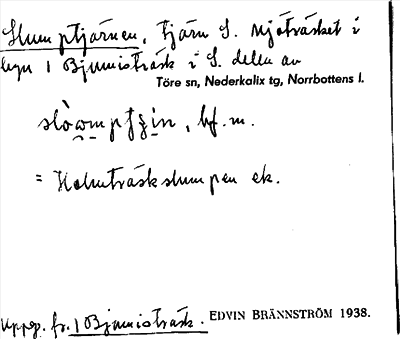 Slumptjärnen, tjärn S. Mjöträsket i
byn 1 Bjumisträsk i S. delen av
Töre sn, Nederkalix tg, Norrbottens l.
bf. m.
= Holmträskslumpen ek.
Uppg. fr. 1 Bjumisträsk. EDVIN BRÄNNSTRÖM 1938.